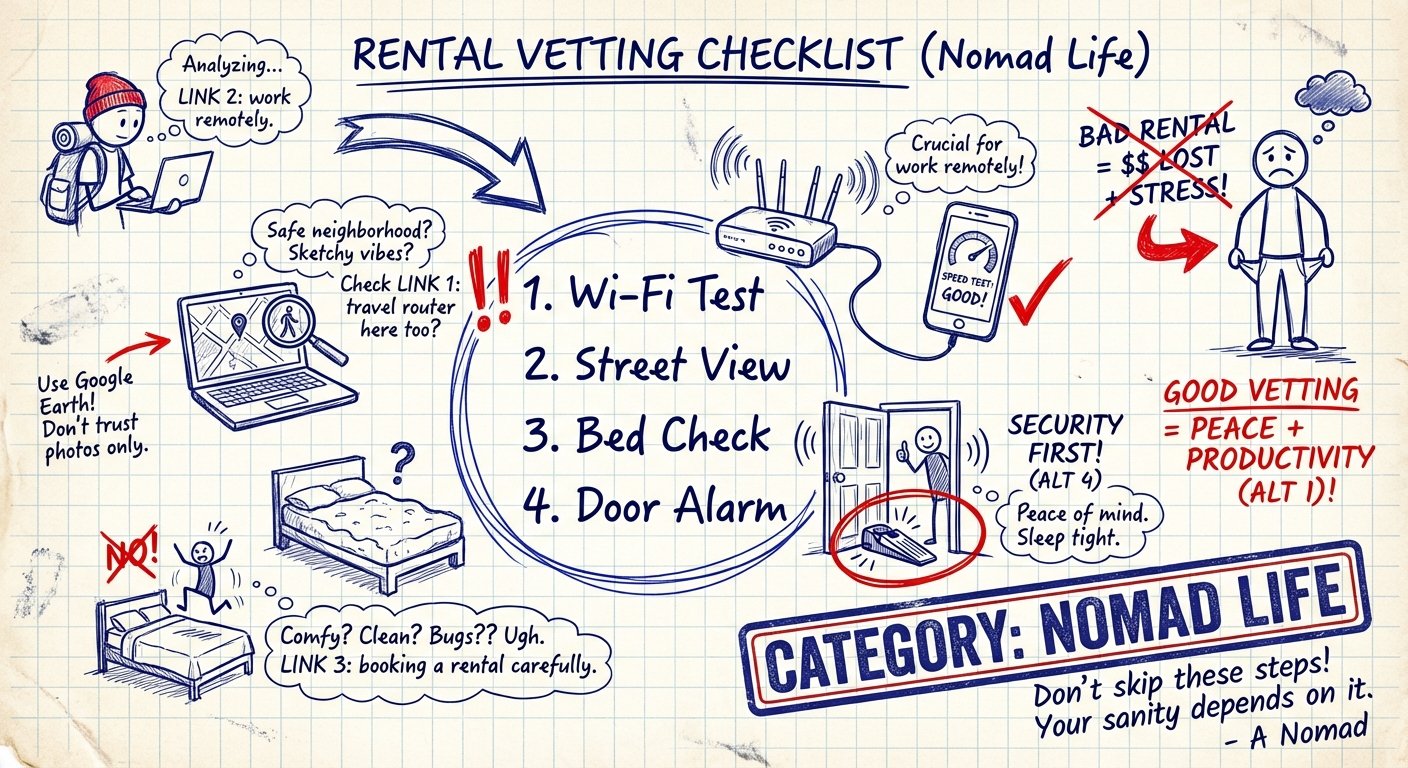 RENTAL VETTING CHECKLIST (Nomad Life)
Analyzing...
LINK 2: work
remotely.
Safe neighborhood?
Sketchy vibes?
Check LINK 1:
travel router
here too?
Use Google
Earth!
Don't trust
photos only.
!!
1. Wi-Fi Test
2. Street View
3. Bed Check
4. Door Alarm
Crucial for
work remotely!
SPEED TEET:
GOOD!
BAD RENTAL
= $$ LOST
+ STRESS!
GOOD VETTING
= PEACE +
PRODUCTIVITY
(ALT 1)!
SECURITY
FIRST!
(ALT 4)
Peace of mind.
Sleep tight.
?
NO!
Comfy? Clean? Bugs?? Ugh.
LINK 3: booking a rental carefully.
CATEGORY: NOMAD LIFE
Don't skip these steps!
Your sanity depends on it.
– A Nomad